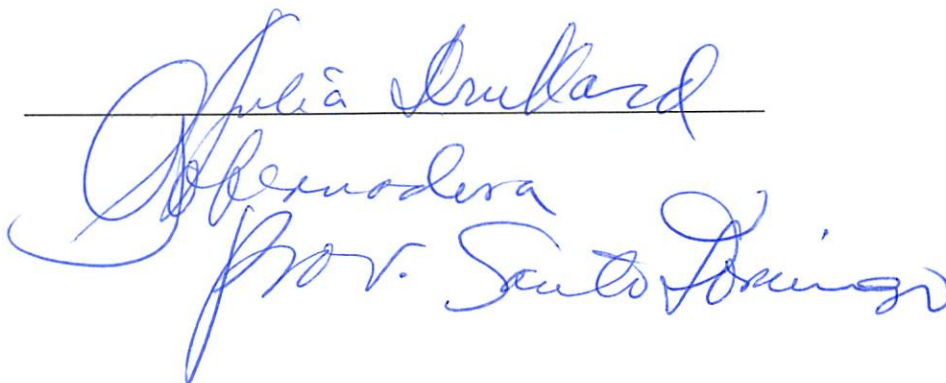 Julia Drullard
Gobernadora
prov. Santo Domingo